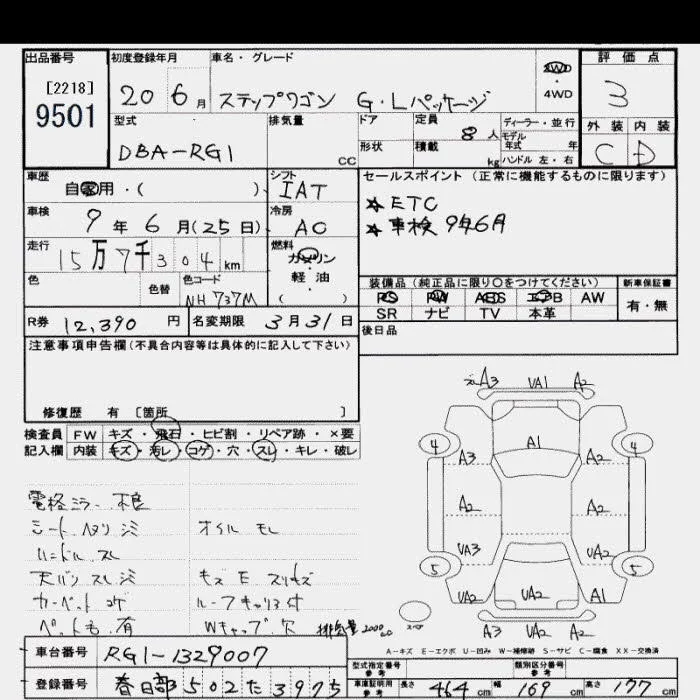 出品番号 初度登録年月 車名・グレード 2WD・4WD 評価点
[2218]
9501
20 6月 ステップワゴン G・Lパッケージ 3
型式 排気量 ドア 定員 8人 ディーラー・並行 外装 内装
形状 積載 kg モデル年式 年
DBA-RG1 CC ハンドル 左・右 C D
車歴 シフト セールスポイント(正常に機能するものに限ります)
自家用・( ) IAT
☆ETC
車検 冷房
9年6月(25日) AC
☆車検 9年6月
走行 燃料
15万7千304km ガソリン・軽油
( )
色 色替 色コード
NH737M
装備品(純正品に限り○をつけてください) 新車保証書
PS PW ABS エアB AW 有・無
SR ナビ TV 本革
R券 12,390円 名変期限 3月31日
後日品
注意事項申告欄(不具合内容等は具体的に記入して下さい)
修復歴 有 〔箇所 〕
検査員 FW キズ・飛石・ヒビ割・リペア跡・×要
記入欄 内装 キズ・汚レ・コゲ・穴・スレ・キレ・破レ
A3 VA1 A2
4 A1 4
A3 A2
A2 A2
VA3 UA2
5 5
VA2 UA2 A1
スペア
A3 VA2 A2
電格ミラー不良
シート ヘタリ シミ オイル モレ
ハンドル スレ
天バリ スレ シミ キズ E スリキズ
カーペット コゲ ルーフキャリヨ付
ペットも 有 Wキャップ 穴 排気量2000cc
A-キズ E-エクボ U-凹み W-補修跡 S-サビ C-腐食 XX-交換済
車台番号 RG1-1329007
型式指定番号 参考 類別区分番号 参考
登録番号 春日部502た3975
車庫証明用 参考 長さ 464cm 幅 169cm 高さ 177cm